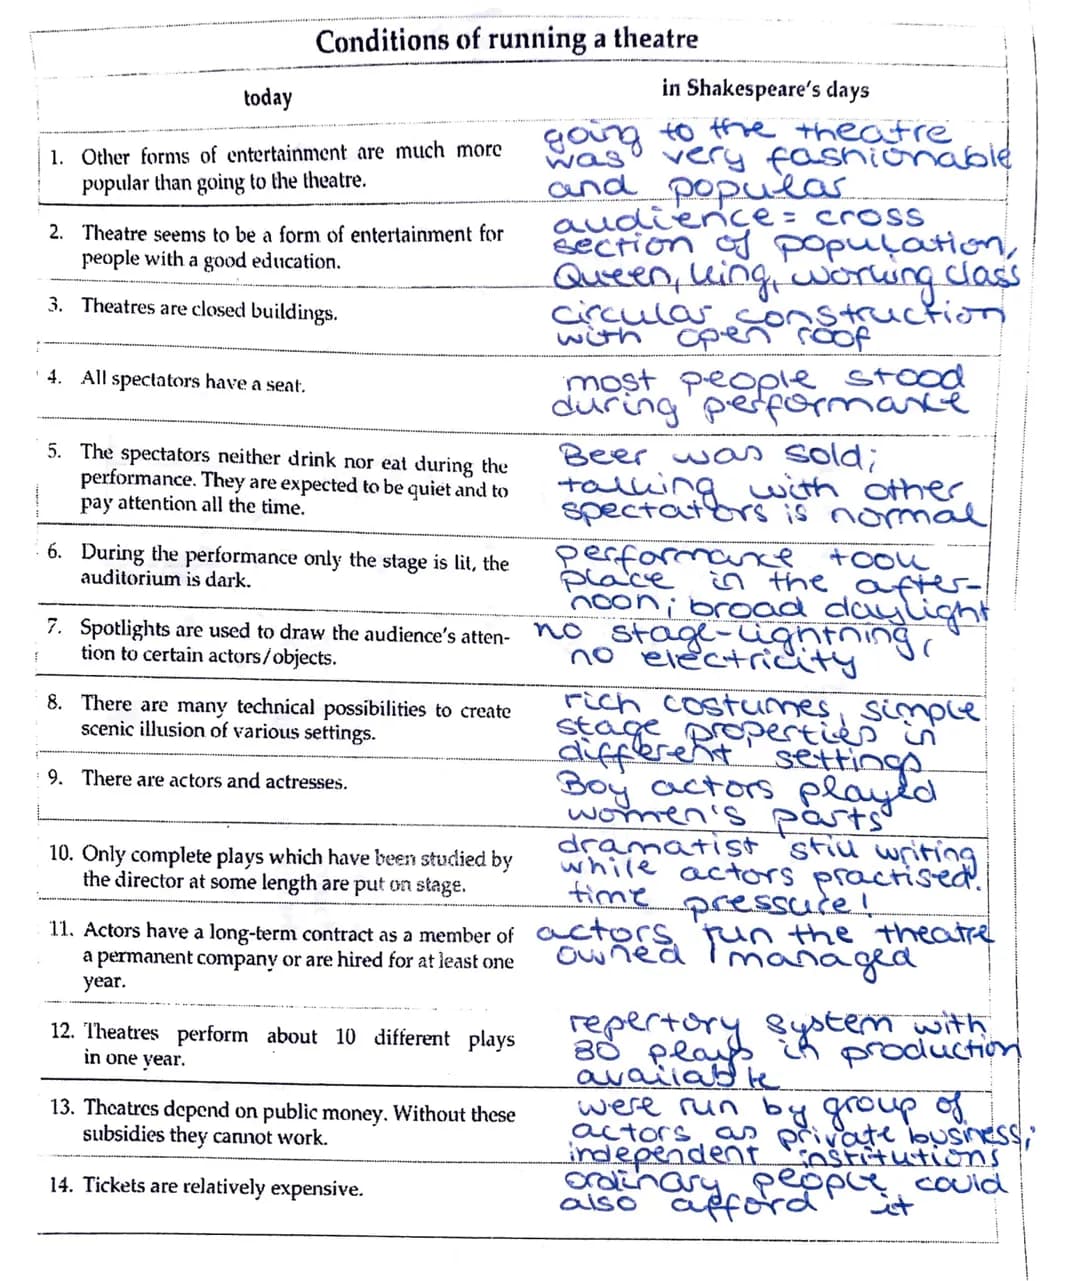 Conditions of running a theatre
today
in Shakespeare's days
1. Other forms of entertainment are much more
popular than going to the theatre.
going to the theatre
was very fashionable
and popular
2. Theatre seems to be a form of entertainment for
people with a good education.
audience = cross
section of population,
Queen, king, working class
3. Theatres are closed buildings.
circular construction
with open roof
4. All spectators have a seat.
most people stood
during performance
5. The spectators neither drink nor eat during the
performance. They are expected to be quiet and to
pay attention all the time.
Beer was sold;
talking with other
spectators is normal
6. During the performance only the stage is lit, the
auditorium is dark.
performance took
place in the after-
noon; broad daylight
7. Spotlights are used to draw the audience's atten-
tion to certain actors/objects.
no stage-lightning,
no electricity
8. There are many technical possibilities to create
scenic illusion of various settings.
rich costumes, simple
stage properties in
different settings
9. There are actors and actresses.
Boy actors played
women's parts
10. Only complete plays which have been studied by
the director at some length are put on stage.
dramatist still writing
while actors practised.
time pressure!
11. Actors have a long-term contract as a member of
a permanent company or are hired for at least one
year.
actors run the theatre
owned / managed
12. Theatres perform about 10 different plays
in one year.
repertory system with
80 plays in production
available
13. Theatres depend on public money. Without these
subsidies they cannot work.
were run by group of
actors as private business;
independent institutions
14. Tickets are relatively expensive.
ordinary people could
also afford it